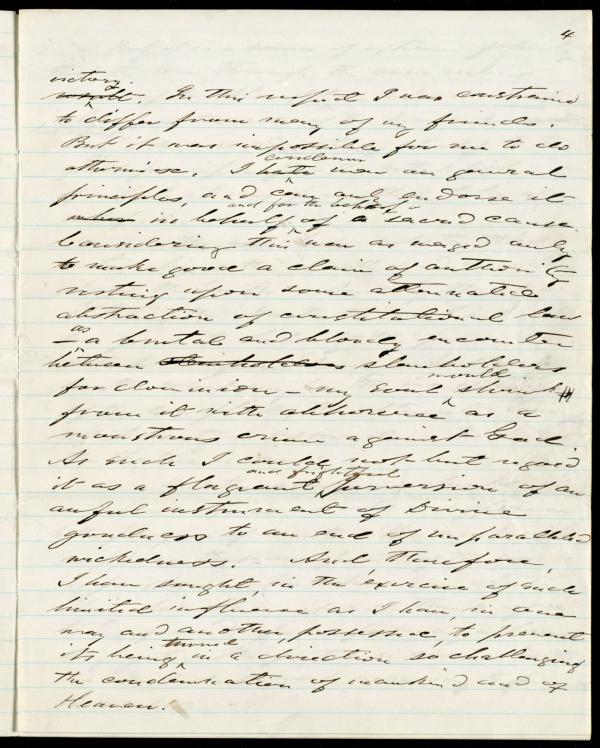 4
victory.
result. In this respect I was constrained
to differ from many of my friends.
But it was impossible for me to do
condemn
otherwise. I hate war on general
principles, and can only endorse it
and for the
in behalf of a sacred cause.
Considering this war as waged only
to make good a claim of authority
resting upon some attenuated
abstraction of constitutional law
as
— a brutal and bloody encounter
between slaveholders slaveholders
for dominion — my soul shrinks
would
from it with abhorrence as a
monstrous crime against God.
As such I could not but regard
and frightful
it as a flagrant perversion of an
awful instrument of Divine
goodness to an end of unparalleled
wickedness. And, therefore,
I have sought, in the exercise of such
limited influence as I have, in one
way and another, possessed, to prevent
turned
its being in a direction so challenging
the condemnation of mankind and of
Heaven.